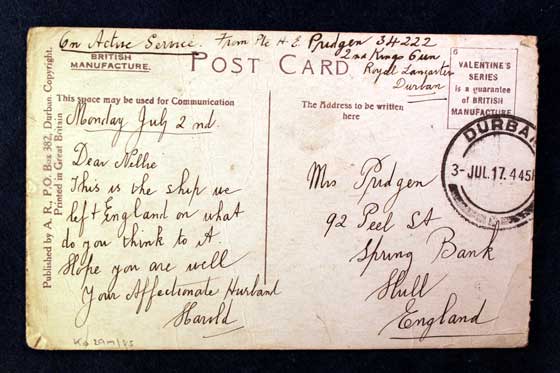 On Active Service. From Pte H. E. Pridgen 34222
2nd Kings Own
Royal Lancaster
Durban
BRITISH
MANUFACTURE.
POST CARD.
6
VALENTINE'S
SERIES
is a guarantee
of BRITISH
MANUFACTURE
This space may be used for Communication
The Address to be written
here
Published by A. R., P.O. Box 382, Durban. Copyright.
Printed in Great Britain
DURBAN
3-JUL.17. 445P
Monday July 2nd.
Dear Nellie
This is the ship we
left England on what
do you think to it.
Hope you are well
Your Affectionate Husband
Harold
Mrs Pridgen
92 Peel St
Spring Bank
Hull
England